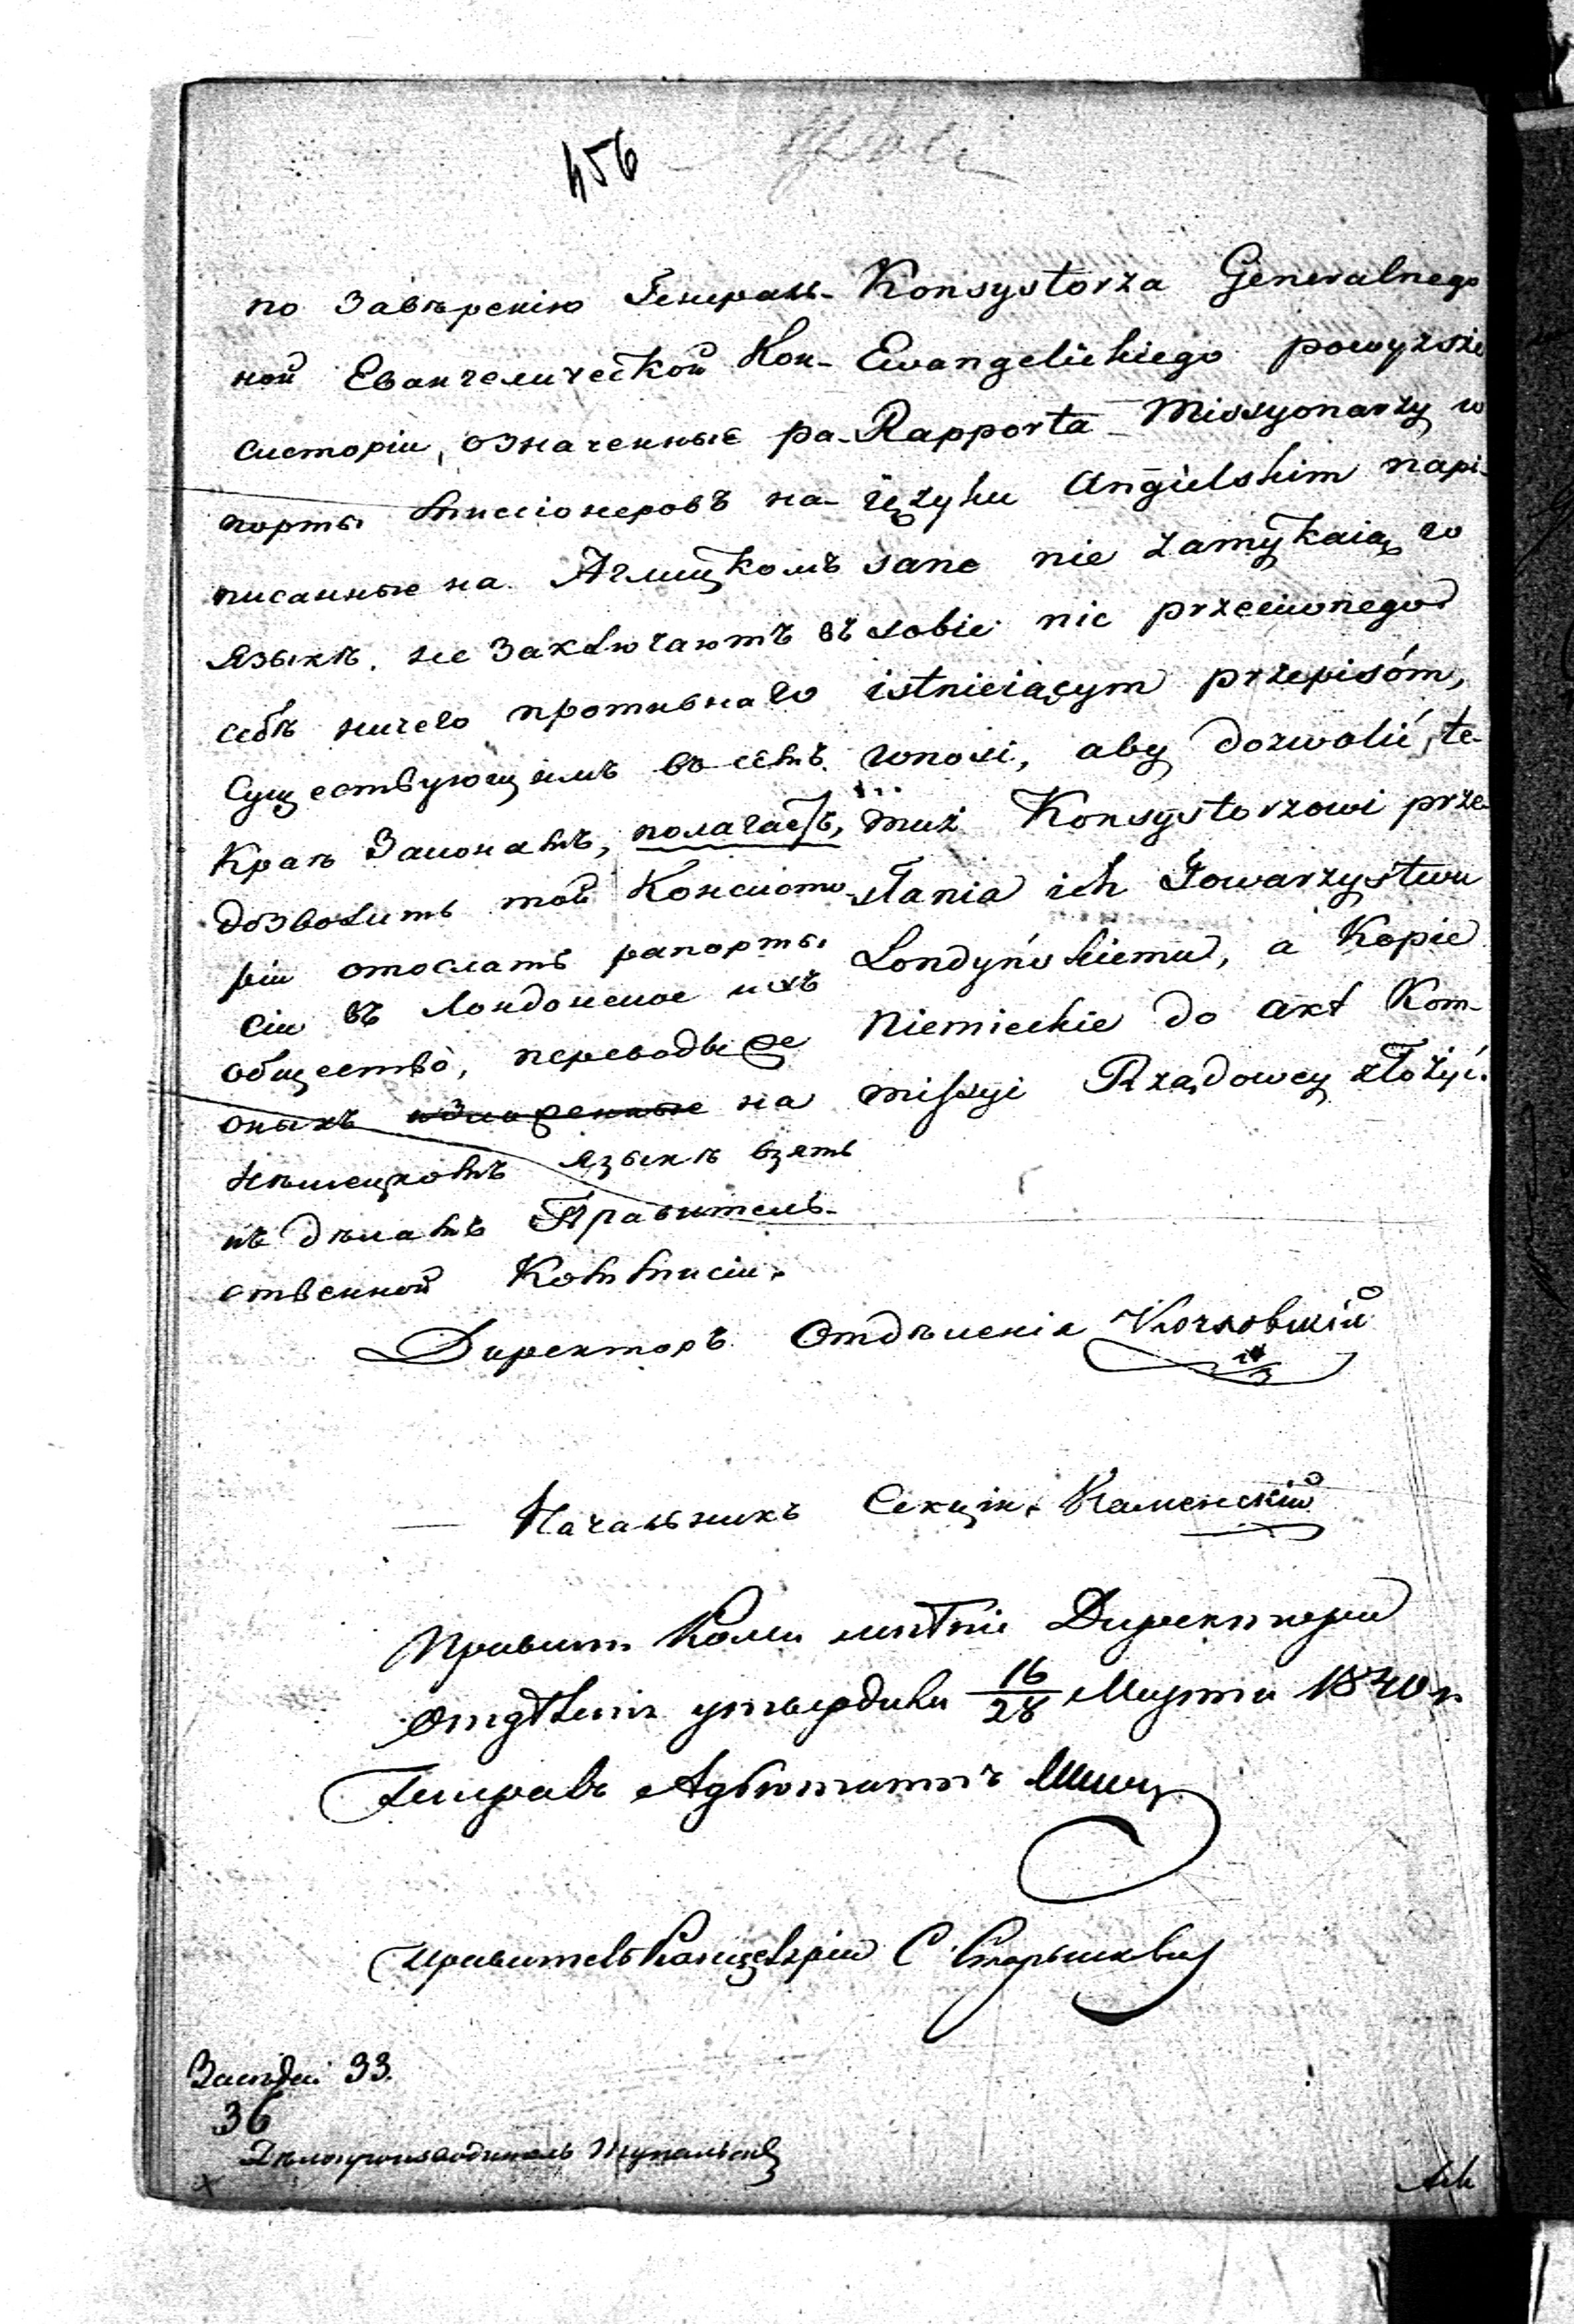 456
по завѣренію Генераль-
ной Евангелической Кон-
систоріи, означенные ра-
порты Миссіонеровъ на-
писанные на Аглицкомъ
языкѣ, не заключаютъ въ
себѣ ничего противнаго
существующимъ въ семъ
Краѣ Законамъ, полагаетъ,
дозволить той Консисто-
ріи отослать рапорты
сіи въ Лондонское ихъ
общество, переводы же
оныхъ на
Нѣмецкомъ языкѣ взять
къ дѣламъ Правитель-
ственной Коммисіи.
Konsystorza Generalnego
Ewangelickiego powyższe
Rapporta Missyonarzy w
ięzyku Angielskim napi-
sane nie zamykaią w
sobie nic przeciwnego
istnieiącym przepisóm,
wnosi, aby dozwolić, te-
muż Konsystorzowi prze-
słania ich Towarzystwu
Londyńskiemu, a Kopie
Niemieckie do akt Kom-
missyi Rządowey złożyć.
Директоръ Отдѣленія
Начальникъ Секціи Каменскій
Правит Комм мнѣніе Директора
Отдѣленія утвердила 16/28 Марта 1840 г
Генералъ Адъютантъ
Правитель Канцеляріи С
Засѣдан 33.
36
Дѣлопроизводитель